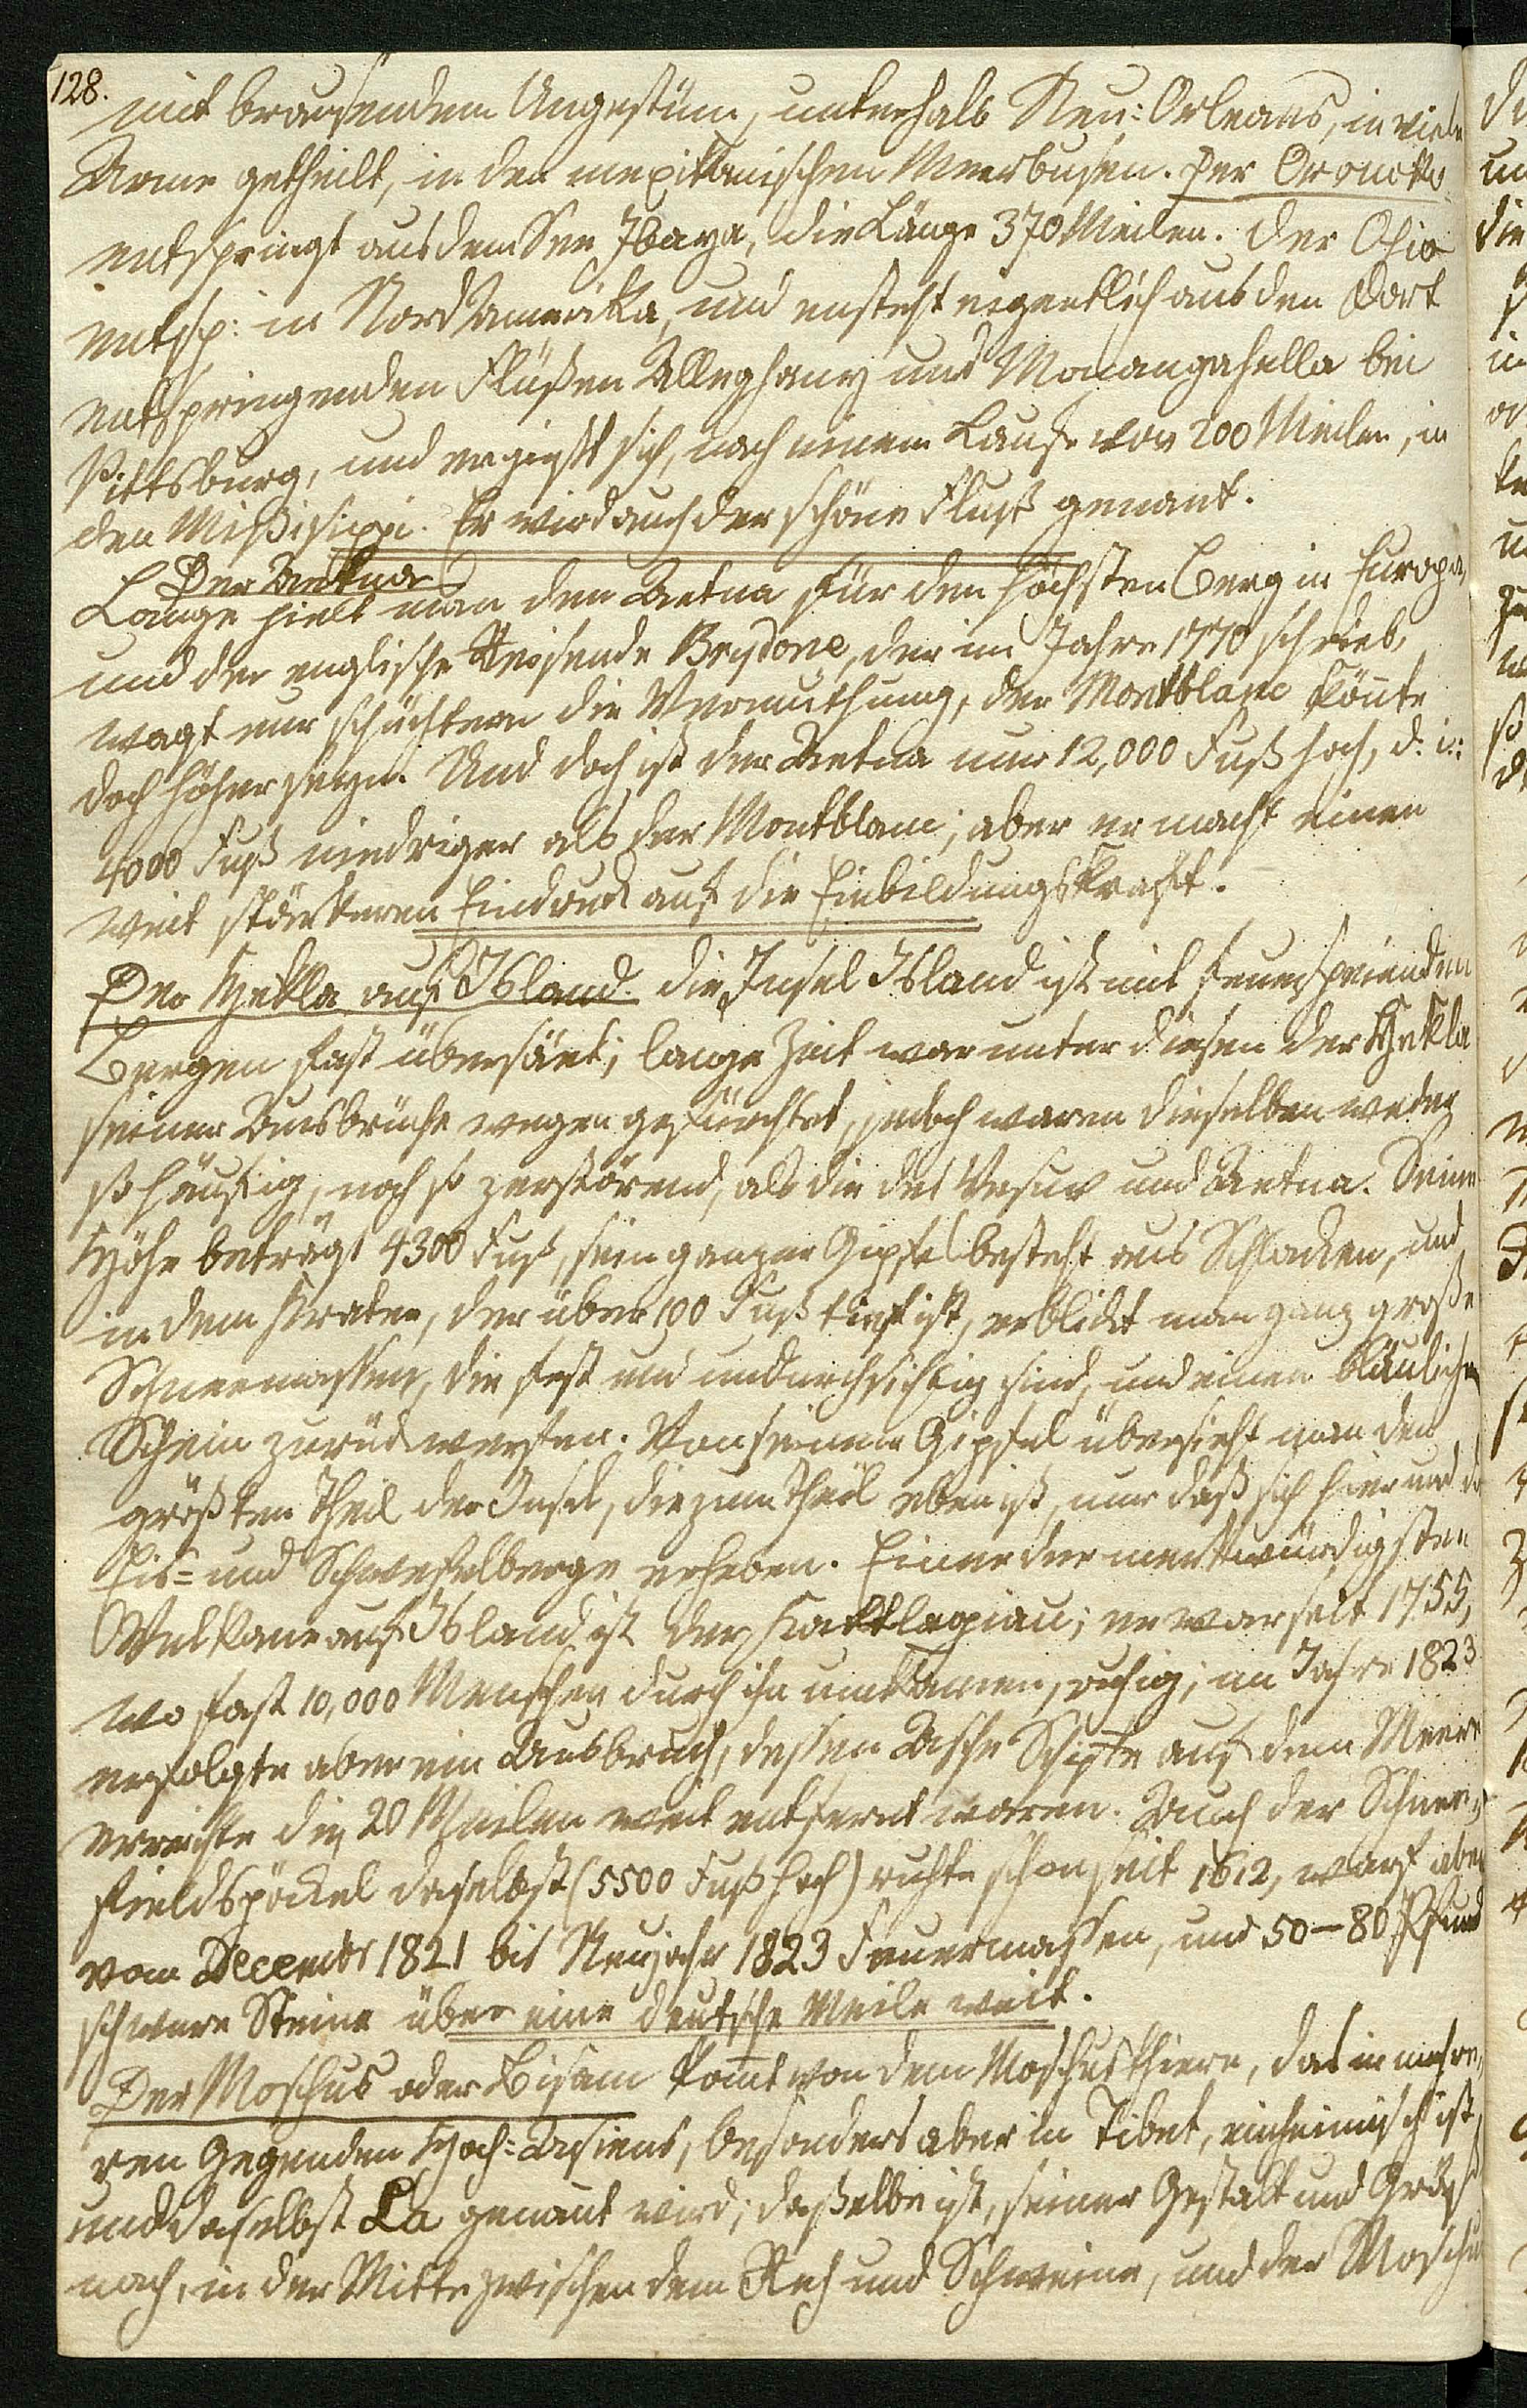 128.
mit brausendem Ungestüm, unterhalb Neu-Orleans, in viele
Arme getheilt, in den mexikanischen Meerbusen. Der Oronoko
entspringt aus dem See Ibaya, die Länge 370 Meilen. Der Ohio
entsp: in Nord Amerika, und ensteht eigentlich aus den dort
entspringenden Flüßen Alleghany und Monangahella bei
Pittsburg, und ergießt sich, nach einem Laufe von 200 Meilen, in
den Mißisippi. Er wird auch der schöne Fluß genant.
Der Aetna
Lange hielt man den Aetna für den höchsten Berg in Europa,
und der englische Reisende Brydone, der im Jahre 1770 schrieb,
wagt nur schüchtern die Vermuthung, der Montblanc könnte
doch höher seyn. Und doch ist der Aetna nur 12,000 Fuß hoch, d. i:
4000 Fuß niedriger als der Montblanc; aber er macht einen
weit stärkeren Eindruck auf die Einbildungskraft.
Der Hekla auf Island. Die Insel Island ist mit feuerspeienden
Bergen fast übersäet; lange Zeit war unter diesen der Hekla
seiner Ausbrüche wegen gefürchtet, jedoch waren dieselben weder
so häufig, noch so zerstörend, als die des Vesuv und Aetna. Seine
Höhe beträgt 4300 Fuß, sein ganzer Gipfel besteht aus Schlacken, und
in dem Krater, der über 100 Fuß tief ist, erblickt man ganz große
Schneemassen, die fest und undurchsichtig sind, und einen bläulichen
Schein zurückwerfen. Von seinem Gipfel übersieht man den
größten Theil der Insel, die zum Theil eben ist, nur daß sich hier und da
Eis- und Schwefelberge erheben. Einer der merkwürdigsten
Vulkane auf Island ist der Kattlagiau; er war seit 1755,
wo fast 10,000 Menschen durch ihn umkamen, ruhig; im Jahre 1823
erfolgte aber ein Ausbruch, dessen Asche Schiffe auf dem Meere
erreichte die 20 Meilen weit entfernt waren. Auch der Schnee-
fieldspöckel daselbst (5500 Fuß hoch) ruhte schon seit 1612, warf aber
vom Decembr 1821 bis Neujahr 1823 Feuermassen, und 50-80 Pfund
schwere Steine über eine deutsche Meile weit.
Der Moschus oder Bisam kommt von dem Moschusthiere, das in mehre-
ren Gegenden Hoch-Asiens, besonders aber in Tibet, einheimisch ist,
und daselbst La genannt wird; dasselbe ist, seiner Gestalt und Größe
nach, in der Mitte zwischen dem Reh und Schweine, und der Moschus